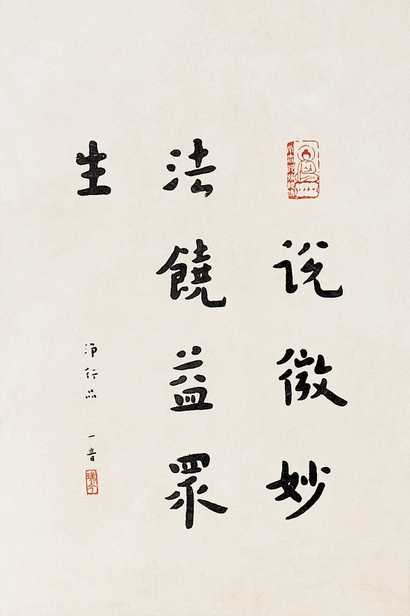 说微妙
法饒益眾
生
净行品 一音